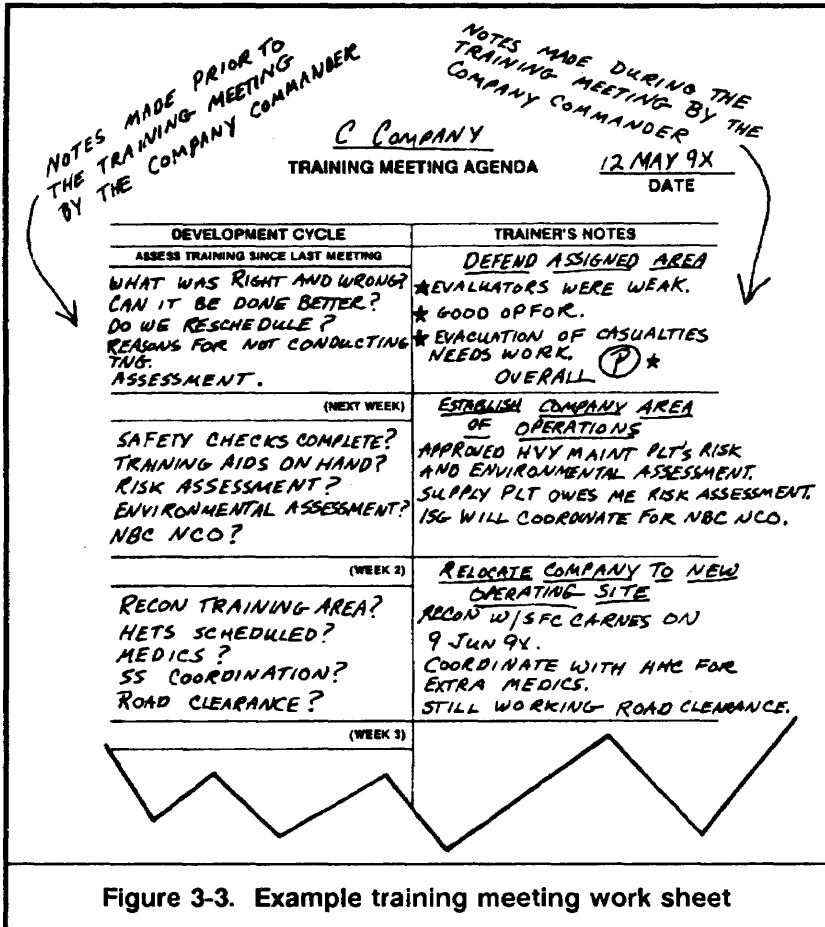 NOTES MADE PRIOR TO
THE TRAINING MEETING
BY THE COMPANY COMMANDER
NOTES MADE DURING THE
TRAINING MEETING BY THE
COMPANY COMMANDER
C COMPANY
TRAINING MEETING AGENDA
12 MAY 9X
DATE
DEVELOPMENT CYCLE
ASSESS TRAINING SINCE LAST MEETING
WHAT WAS RIGHT AND WRONG?
CAN IT BE DONE BETTER?
DO WE RESCHEDULE?
REASONS FOR NOT CONDUCTING
TNG.
ASSESSMENT.
TRAINER'S NOTES
DEFEND ASSIGNED AREA
★ EVALUATORS WERE WEAK.
★ GOOD OPFOR.
★ EVACUATION OF CASUALTIES
NEEDS WORK.
OVERALL Ⓟ ★
(NEXT WEEK)
SAFETY CHECKS COMPLETE?
TRAINING AIDS ON HAND?
RISK ASSESSMENT?
ENVIRONMENTAL ASSESSMENT?
NBC NCO?
ESTABLISH COMPANY AREA
OF OPERATIONS
APPROVED HVY MAINT PLT'S RISK
AND ENVIRONMENTAL ASSESSMENT.
SUPPLY PLT OWES ME RISK ASSESSMENT.
1SG WILL COORDINATE FOR NBC NCO.
(WEEK 2)
RECON TRAINING AREA?
HETS SCHEDULED?
MEDICS?
SS COORDINATION?
ROAD CLEARANCE?
RELOCATE COMPANY TO NEW
OPERATING SITE
RECON W/SFC CARNES ON
9 JUN 9X.
COORDINATE WITH HHC FOR
EXTRA MEDICS.
STILL WORKING ROAD CLEARANCE.
(WEEK 3)
Figure 3-3. Example training meeting work sheet